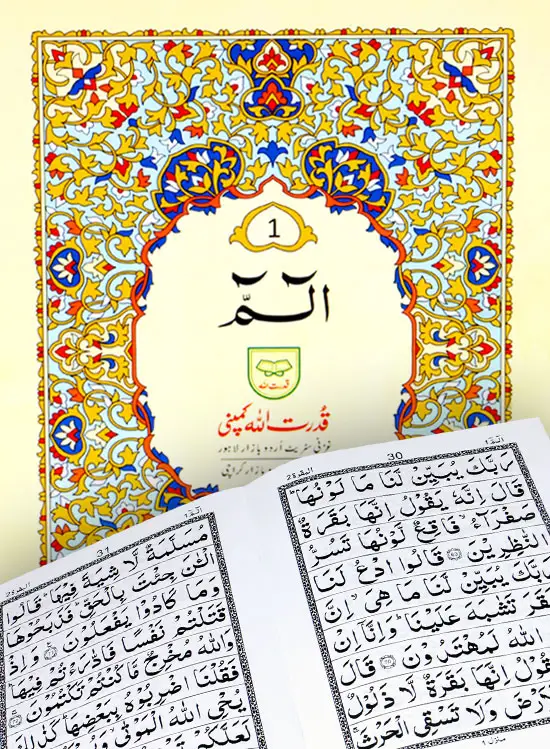 1
الٓمّٓ
قدرت اللہ
قُدرت اللہ کمپنی
غزنی سٹریٹ اُردو بازار لاہور
بازار کراچی
الٓمّٓ ١
30
البقرة ٢
رَبَّكَ يُبَيِّنْ لَّنَا مَا لَوْنُهَا ؕ
قَالَ اِنَّهٗ يَقُوْلُ اِنَّهَا بَقَرَةٌ
صَفْرَآءُ ۙ فَاقِعٌ لَّوْنُهَا تَسُرُّ
النّٰظِرِيْنَ قَالُوا ادْعُ لَنَا
رَبَّكَ يُبَيِّنْ لَّنَا مَا هِيَ ۙ اِنَّ
بَقَرَ تَشٰبَهَ عَلَيْنَا ؕ وَاِنَّاۤ اِنْ
اللّٰهُ لَمُهْتَدُوْنَ قَالَ
يَقُوْلُ اِنَّهَا بَقَرَةٌ لَّا ذَلُوْلٌ
رْضَ وَلَا تَسْقِي الْحَرْثَ ۚ
منزل
الٓمّٓ ١
31
البقرة ٢
مُسَلَّمَةٌ لَّا شِيَةَ فِيْهَا ؕ قَالُوا
الْـٰٔنَ جِئْتَ بِالْحَقِّ ؕ فَذَبَحُوْهَا
وَمَا كَادُوْا يَفْعَلُوْنَ وَاِذْ
قَتَلْتُمْ نَفْسًا فَادّٰرَءْتُمْ فِيْهَا ؕ
وَاللّٰهُ مُخْرِجٌ مَّا كُنْتُمْ تَكْتُمُوْنَ
فَقُلْنَا اضْرِبُوْهُ بِبَعْضِهَا ؕ كَذٰلِكَ
يُحْيِ اللّٰهُ الْمَوْتٰى ۙ
لَعَلَّكُمْ